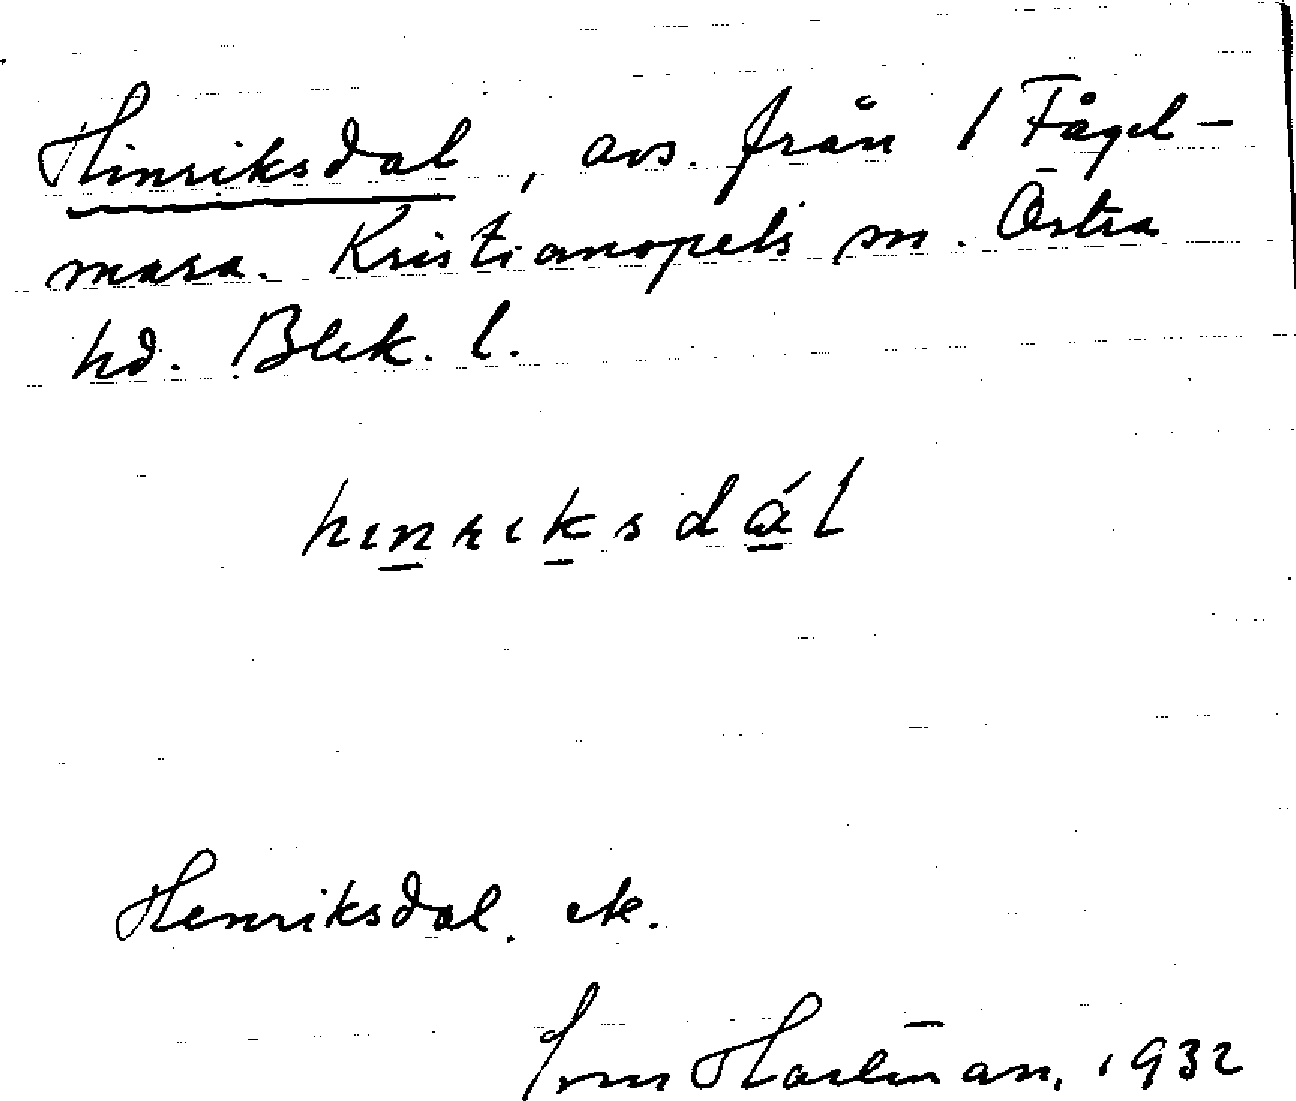 Hinriksdal, avs. från 1 Fågel-
mara. Kristianopels sn. Östra
hd. Blek. l.
hinriksdál
Henriksdal. ek.
Hartman, 1932